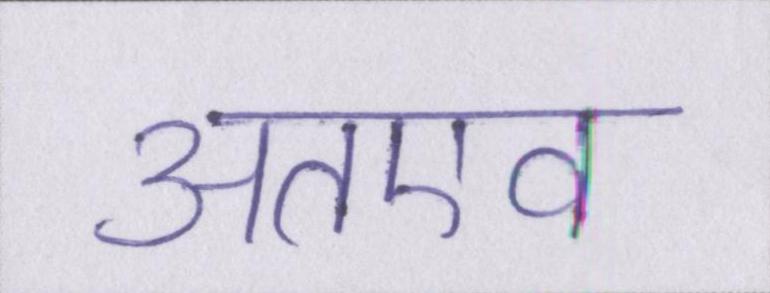 अतएव